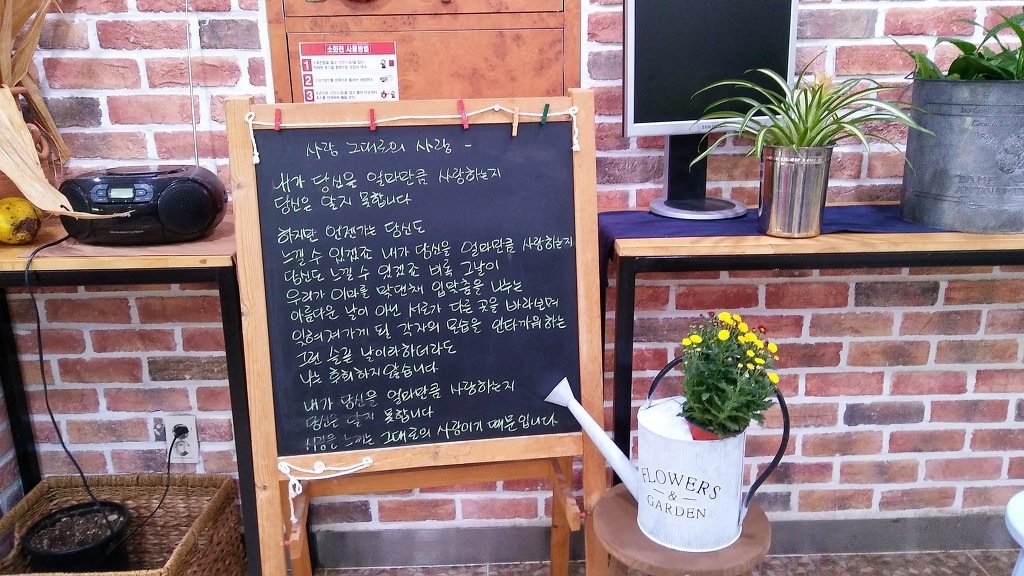 소화전 사용방법
1
2
3
사랑 그대로의 사랑 -
내가 당신을 얼마만큼 사랑하는지
당신은 알지 못합니다
하지만 언젠가는 당신도
느낄 수 있겠죠 내가 당신을 얼마만큼 사랑하는지
당신도 느낄 수 있겠죠 비록 그날이
우리가 이마를 맞댄채 입맞춤을 나누는
아름다운 날이 아닌 서로가 다른 곳을 바라보며
잊혀져가게 될 각자의 모습을 안타까워하는
그런 슬픈 날이라하더라도
나는 후회하지 않습니다
내가 당신을 얼마만큼 사랑하는지
당신은 알지 못합니다
사랑을 느끼는 그대로의 사랑이기 때문입니다
FLOWERS
&
GARDEN